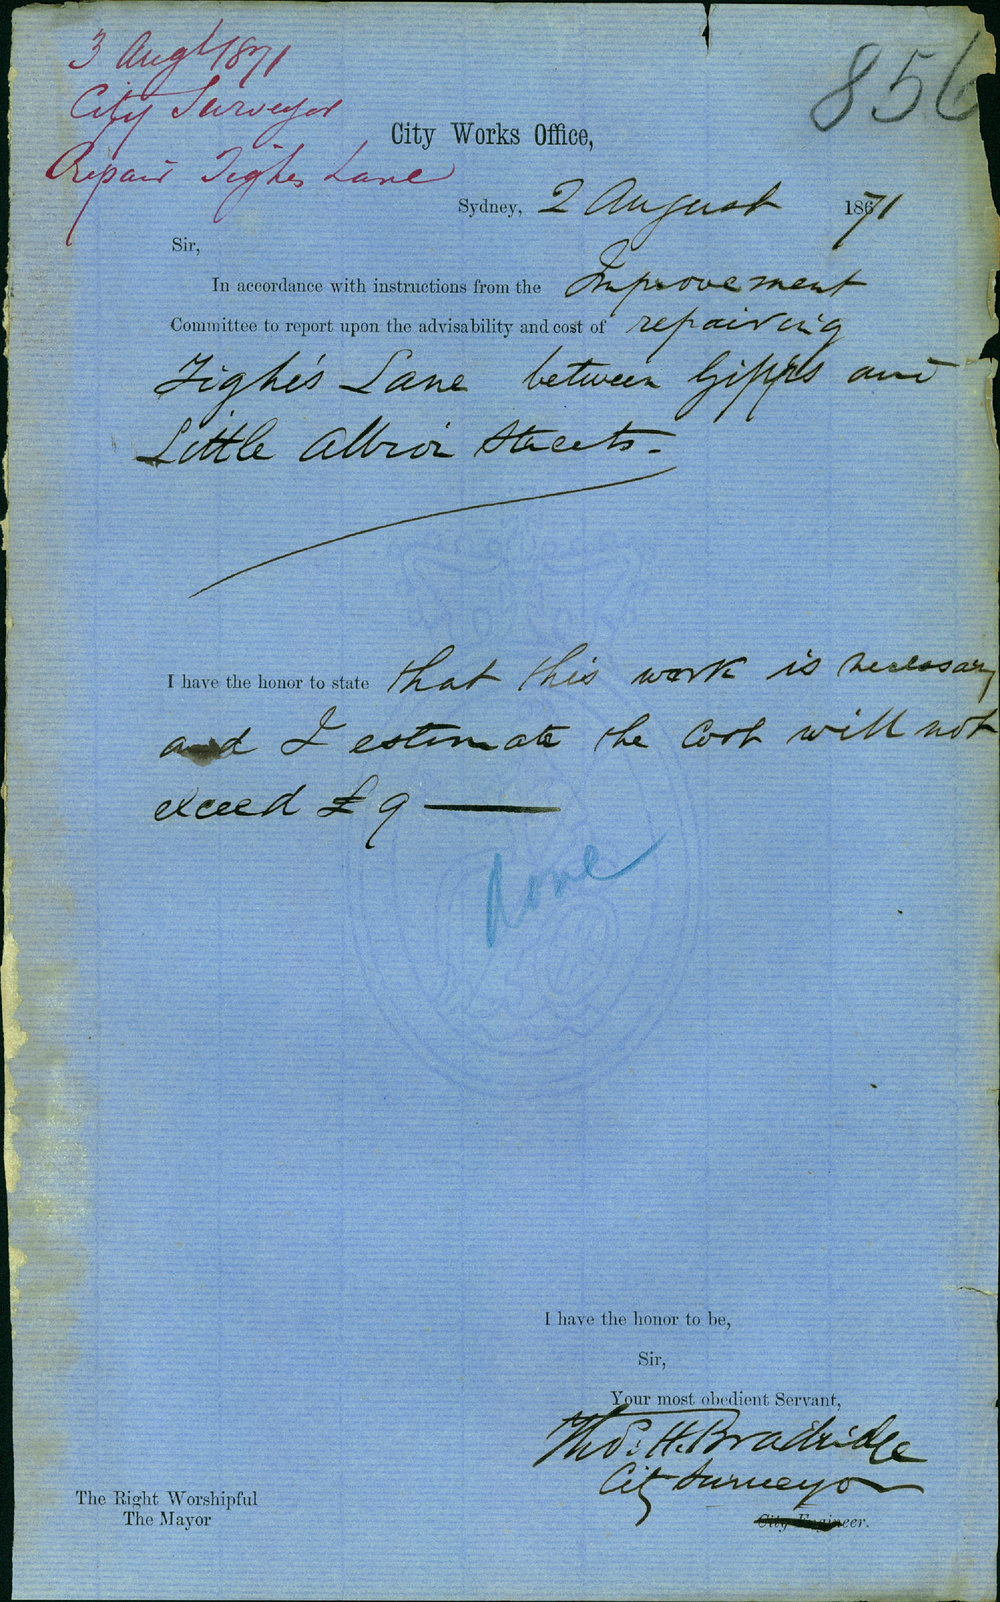 3 Augt 1871
City Surveyor
Repair Tighes Lane
856
City Works Office,
Sydney, 2 August 1871
Sir,
In accordance with instructions from the Improvement
Committee to report upon the advisability and cost of repairing
Tighe's Lane between Gipps and
Little Albion Streets.
I have the honor to state that this work is necessary
and I estimate the Cost will not
exceed £9
Done
I have the honor to be,
Sir,
Your most obedient Servant,
Thos. H. Bradridge
City Surveyor
City Engineer.
The Right Worshipful
The Mayor